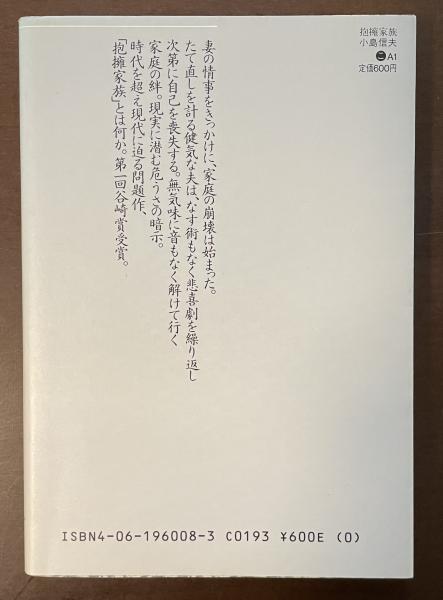 抱擁家族
小島信夫
こA1
定価600円
妻の情事をきっかけに、家庭の崩壊は始まった。
たて直しを計る健気な夫は、なす術もなく悲喜劇を繰り返し
次第に自己を喪失する。無気味に音もなく解けて行く
家庭の絆。現実に潜む危うさの暗示。
時代を超え現代に迫る問題作、
「抱擁家族」とは何か。第一回谷崎賞受賞。
ISBN4-06-196008-3 C0193 ¥600E (0)